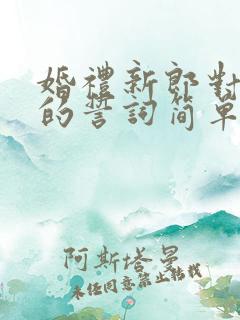 婚禮新郎對
的誓詞簡單
阿斯塔曼
未经同意禁止转载